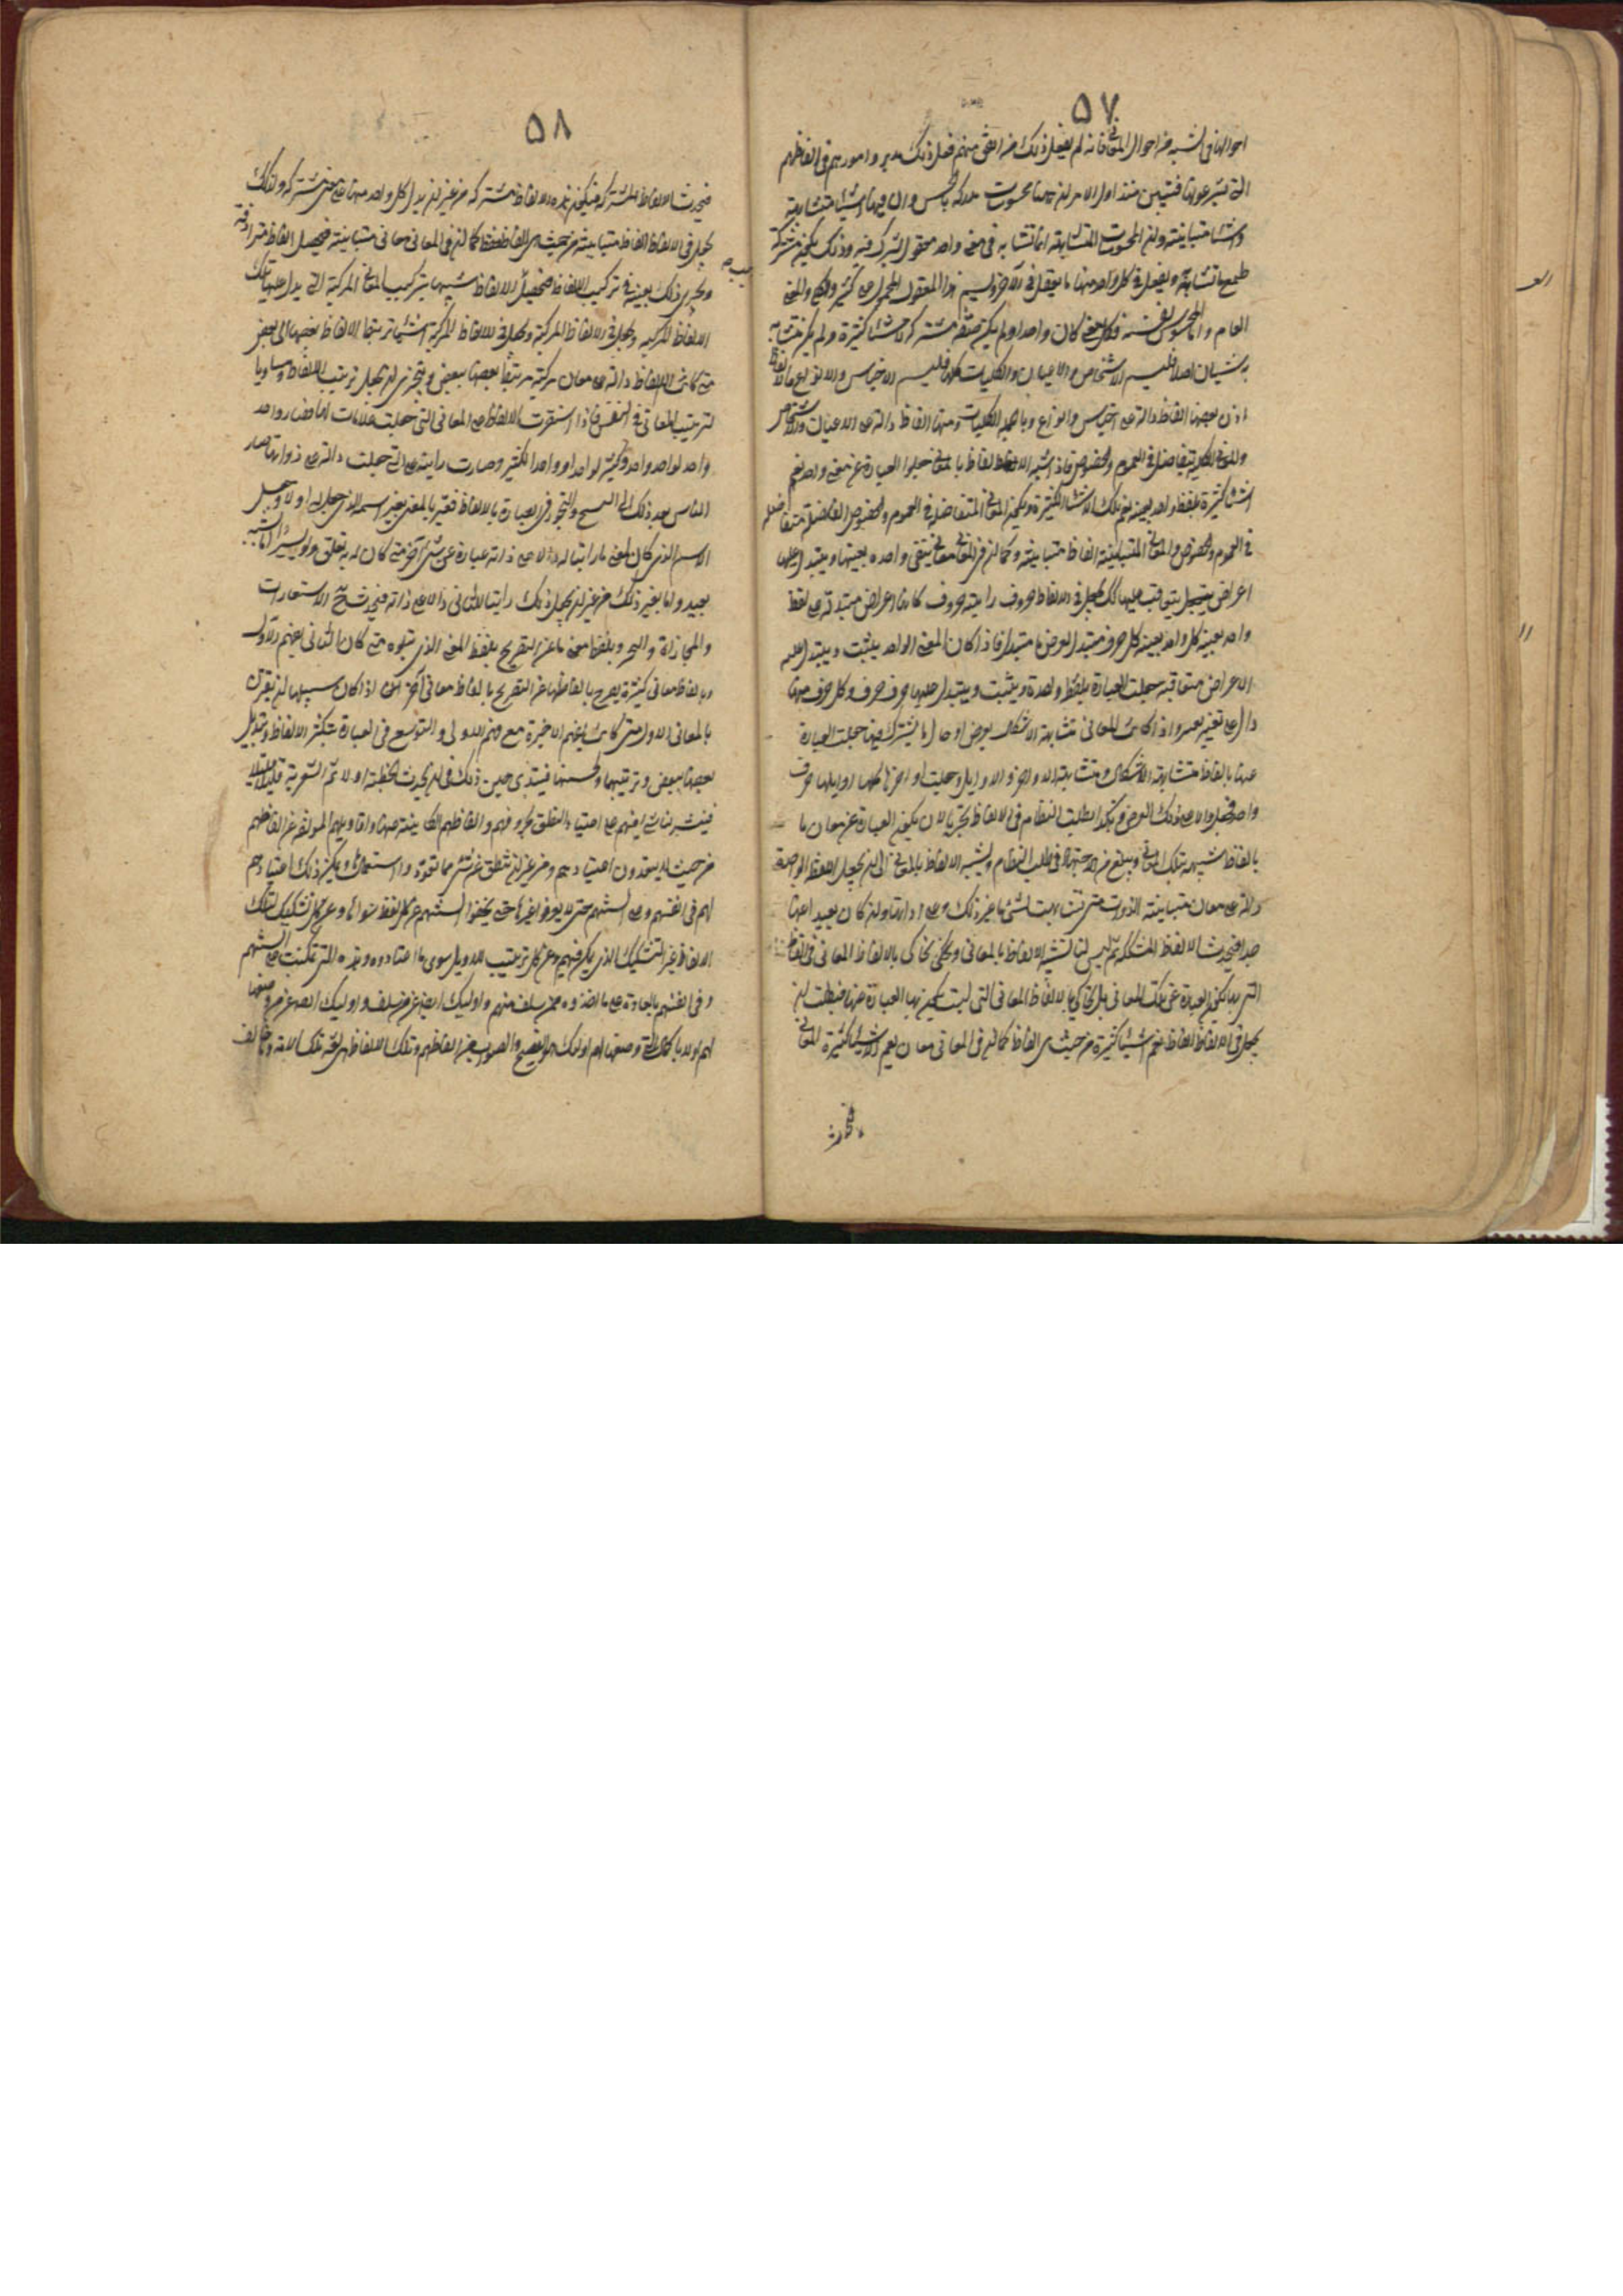 ٥٧
احوالها في شبه من احوال المعاني فان لم يفعل ذلك من اتفق منهم فعل ذلك مدبروا امورهم في الفاظهم
التي يشرعونها فتبين منذ اول الامر ان هاهنا محسوسات مدركة بالحس وان فيها اشياء متشابهة
واشياء متباينة وان المحسوسات المتشابهة انما تتشابه في معنى واحد معقول تشترك فيه وذلك يكون مشتركا
لجميع ما تشابه ويعقل في كل واحد منها ما يعقل في الآخر ويسمى هذا المعقول المحمول على كثير الكلي والمعنى
العام واما المحسوس نفسه فكل معنى كان واحدا ولم يكن صفة مشتركة لاشياء كثيرة ولم يكن يشابه
شيئان اصلا فليسم الاشخاص والاعيان والكليات كلها فليسم الاجناس والانواع فالالفاظ
اذن بعضها الفاظ دالة على اجناس وانواع وبالجملة الكليات ومنها الفاظ دالة على الاعيان والاشخاص
والمعاني الكلية تتفاضل في العموم والخصوص فاذا اشبه الالفاظ بالمعاني جعلوا العبارة عن معنى واحد يعم
اشياء كثيرة بلفظ واحد بعينه يعم تلك الاشياء الكثيرة وتكون المعاني المتفاضلة في العموم والخصوص الفاظ متفاضلة
في العموم والخصوص والمعاني المتباينة الفاظ متباينة وكما ان في المعاني معاني تبقى واحدة بعينها ويتبدل عليها
اعراض تتعاقب عليها كذلك تجعل في الالفاظ حروف راتبة وحروف كانها اعراض متبدلة على لفظ
واحد بعينه كل واحد بعينه كل حرف متبدل لعرض ما متبدل فاذا كان المعنى الواحد يثبت ويتبدل عليه
الاعراض متعاقبة جعلت العبارة بلفظة واحدة ويثبت ويتبدل عليها حرف حرف وكل حرف منها
دال على تغير تغير واذا كانت المعاني متشابهة الاشكال بعرض او حال ما تشترك فيها جعلت العبارة
عنها بالفاظ متشابهة الاشكال ومتشابهة الاواخر والاوايل وجعلت اواخرها كلها او اوايلها حرف
واحد فجعل دالا على ذلك العرض وهكذا يطلب النظام في الالفاظ تحريا لان يكون العبارة عن معان ما
بالفاظ شبيهة بتلك المعاني ويبلغ من الاجتهاد في طلب النظام وتشبيه الالفاظ بالمعاني الى ان يجعل اللفظ الواحد
دالا على معان متباينة الذوات متى تشابهت بشيء ما غير ذلك وعلى ادلتها وان كان بعيدا عنها
جدا فيحدث الالفاظ المشككة ثم ليس لنا تشبيه الالفاظ بالمعاني ونحن نحاكي بالالفاظ المعاني في الفاظ
التي بها تكون العبارة عن تلك المعاني بل نحاكي بالالفاظ المعاني التي ليست يكون بها العبارة عنها فيطلب ان
يجعل في الالفاظ الفاظ تعم اشياء كثيرة من حيث هي الفاظ كما ان في المعاني معان يعم لاشياء كثيرة المعاني
فيحدث
٥٨
فيحدث الالفاظ المشتركة فيكون هذه الالفاظ مشتركة من غير ان يدل كل واحد منها على معنى مشترك وكذلك
يجعل في الالفاظ الفاظ متباينة من حيث هي الفاظ فقط كما ان في المعاني معاني متباينة فيحصل الفاظ مترادفة
ويجري ذلك بعينه في تركيب الالفاظ فيحصل الالفاظ شبيها بتركيب المعاني المركبة التي يدل عليها تلك
الالفاظ المركبة ويجعل في الالفاظ المركبة اشياء ترتبط بها الالفاظ بعضها الى بعض
متى كانت الالفاظ دالة على معان مركبة مرتبط بعضها ببعض ويتحرى ان يجعل ترتيب الالفاظ مساويا
لترتيب المعاني في النفس فاذا استقرت الالفاظ على المعاني التي جعلت علامات لها فصار واحد
واحد لواحد واحد وكثير لواحد او واحد لكثير وصارت راتبة على التي جعلت دالة على ذواتها صار
الناس بعد ذلك الى النسخ والتجوز في العبارة بالالفاظ فعبر بالمعنى بغير اسمه الذي جعل له اولا وجعل
الاسم الذي كان لمعنى ما راتبا له دالا على ذاته عبارة عن شيء آخر متى كان له به تعلق ولو يسيرا اما لشبه
بعيد واما بغير ذلك من غير ان يجعل ذلك راتبا للثاني دالا على ذاته فيحدث حينئذ الاستعارات
والمجازات والتجرد بلفظ معنى ما عن التصريح بلفظ المعنى الذي يتلوه متى كان الثاني يفهم من الاول
وبالفاظ معاني كثيرة يصرح بالفاظها عن التصريح بالفاظ معاني اخر اذا كان سبيلها ان يقرن
بالمعاني الاول متى كانت يفهم الاخيرة مع فهم الاولى والتوسع في العبارة بتكثير الالفاظ وتبديل
بعضها ببعض وترتيبها وتحسينها فيبتدئ حين ذلك في ان يحدث الخطبية اولا ثم الشعرية قليلا قليلا
فينشؤ من نشأ فيهم على اعتيادهم النطق بحروفهم والفاظهم الكاينة عنها واقاويلهم المؤلفة عن الفاظهم
من حيث لا يتعدون اعتيادهم ومن غير ان ينطق عن شيء مما تعودوا استعماله ويمكن ذلك اعتيادهم
لها في انفسهم وعلى السنتهم حتى لا يعرفوا غيرها حتى تجفوا السنتهم عن كل لفظ سواها وعن كل تشكيل لتلك
الالفاظ غير التشكيل الذي تمكن فيهم وعن كل ترتيب للاقاويل سوى ما اعتادوه وهذه التي تمكنت على السنتهم
وفي انفسهم بالعادة على ما اخذوه ممن سلف منهم واوليك ايضا عن من سلف واوليك ايضا عن من وضعها
لهم اولا باكمال التي وضعها لهم اولئك هو الفصيح والصواب من الفاظهم وتلك الالفاظ هي لغة تلك الامة وما خالف